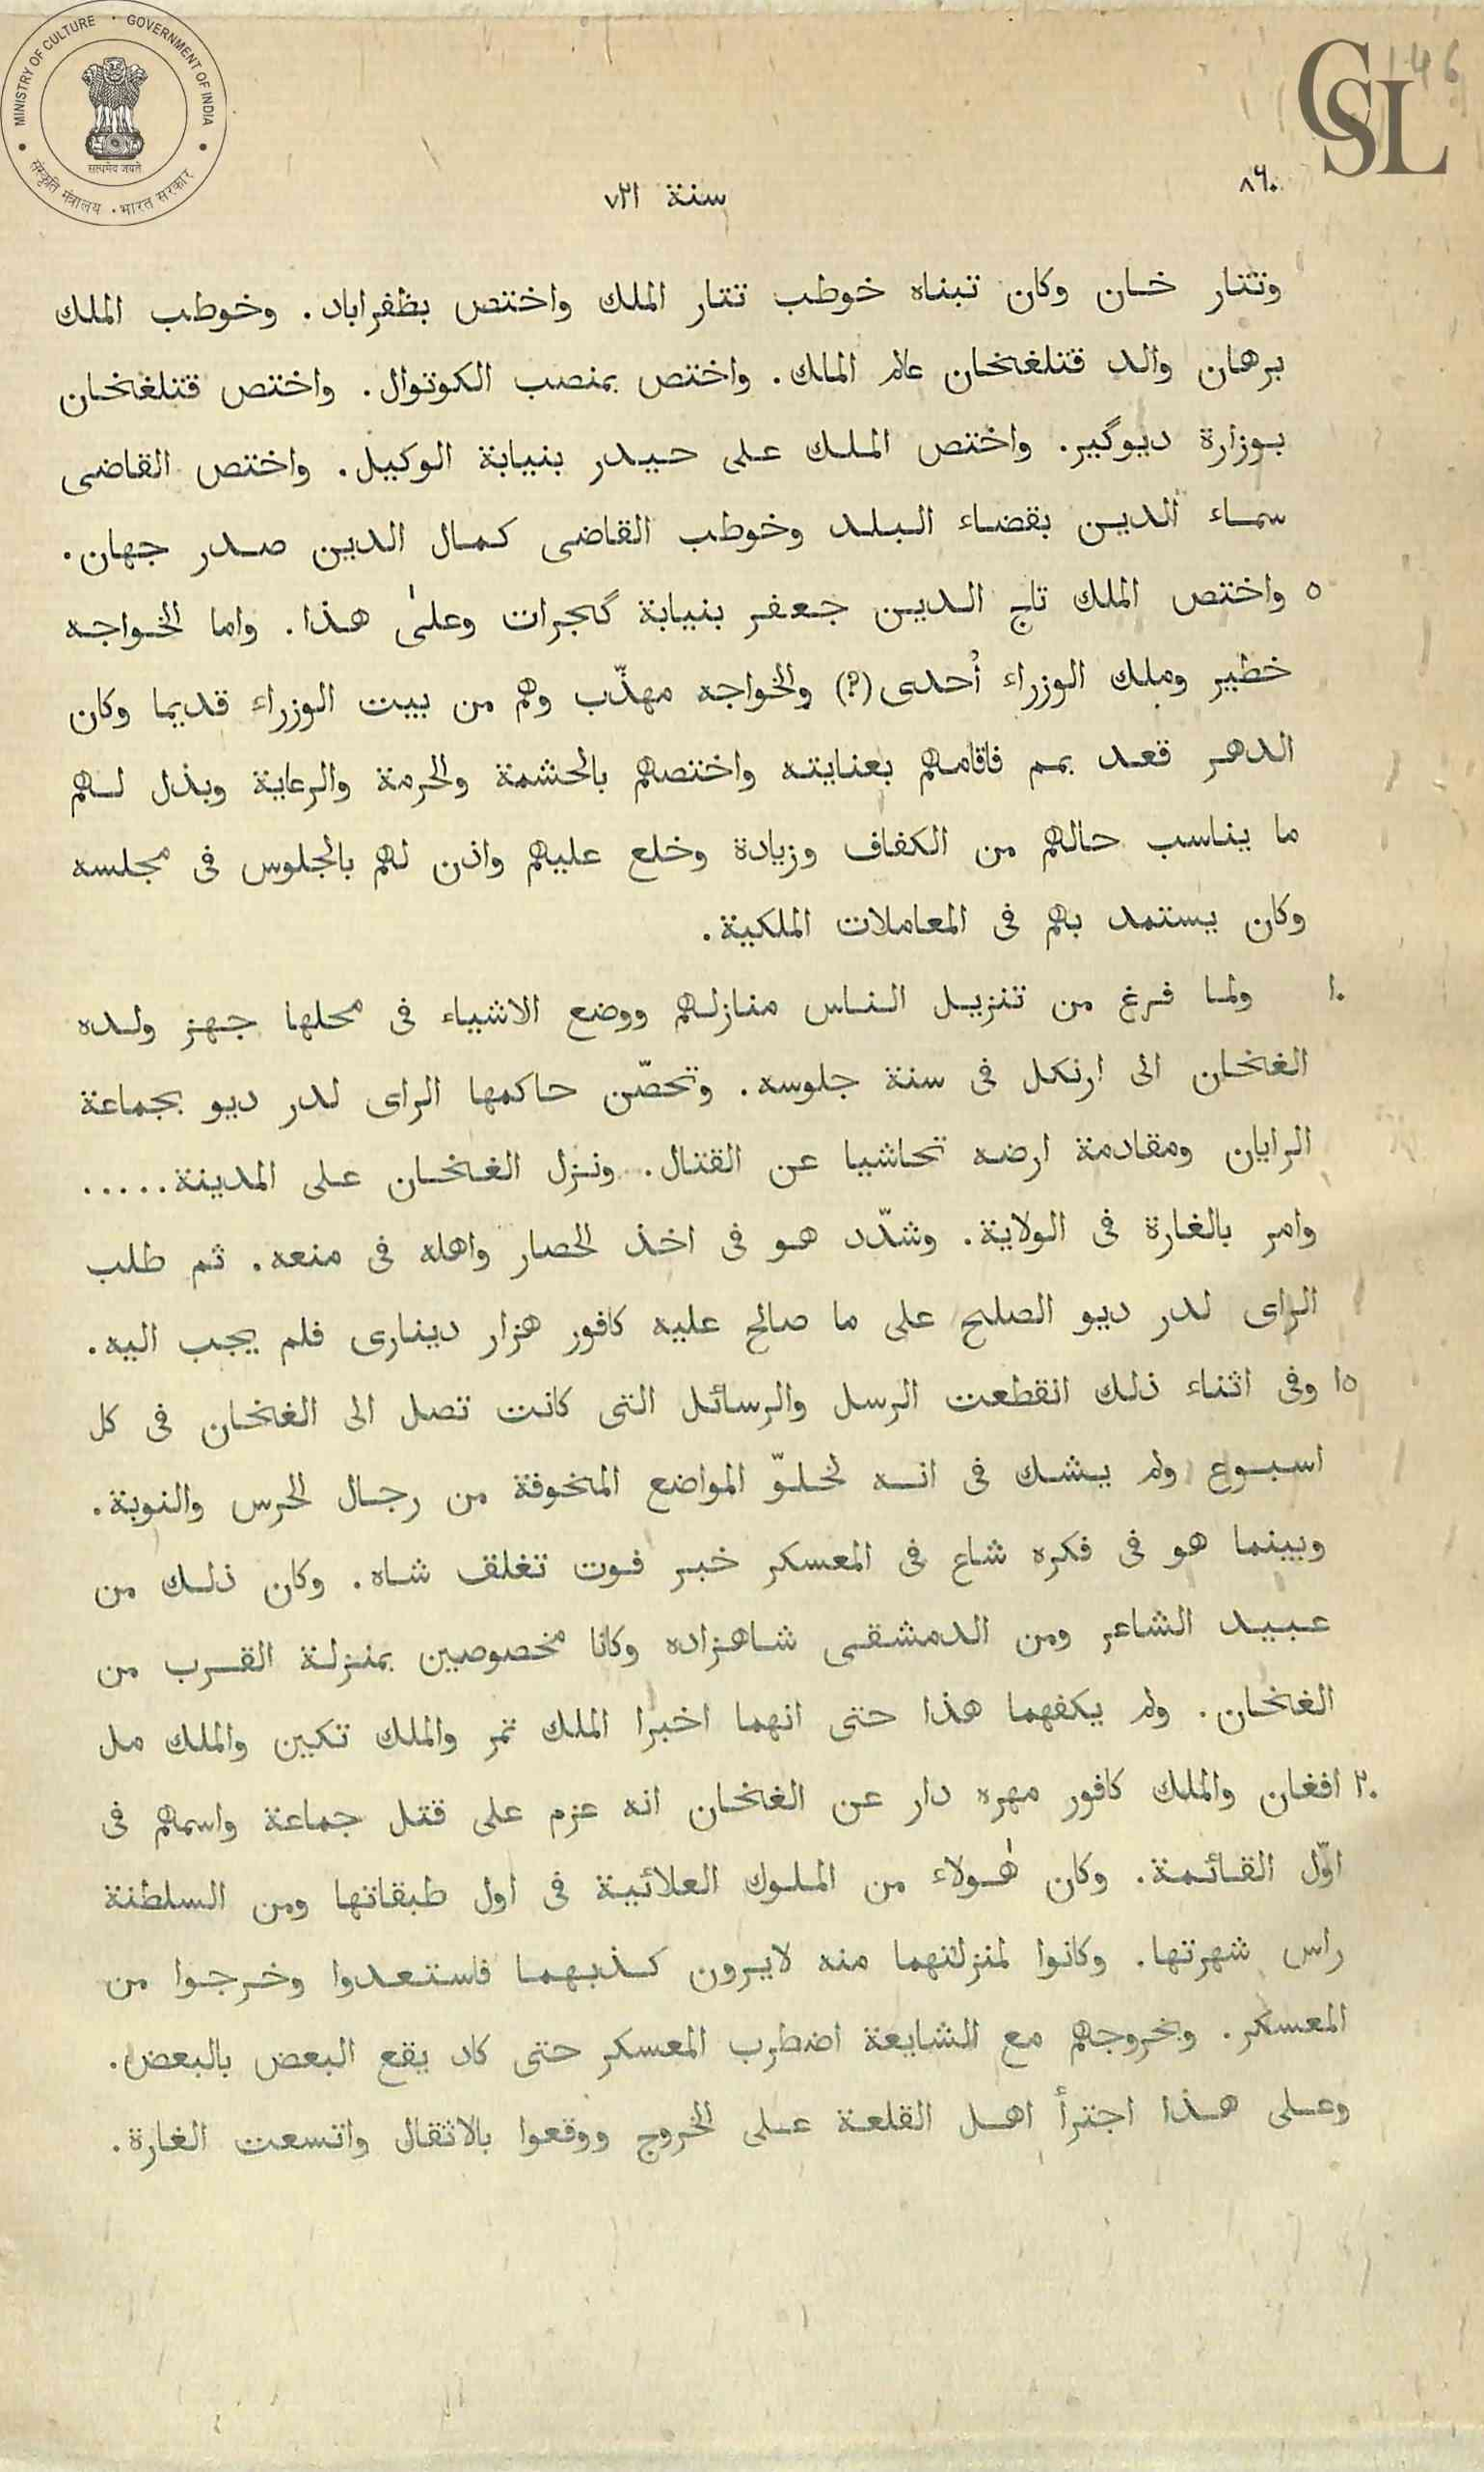 MINISTRY OF CULTURE · GOVERNMENT OF INDIA
सत्यमेव जयते
संस्कृति मंत्रालय · भारत सरकार
CSL
146
٨٦٠
سنة ٧٢١
وتتار خان وكان تبناه خوطب تتار الملك واختص بظفراباد. وخوطب الملك
برهان والد قتلغخان عالم الملك. واختص بمنصب الكوتوال. واختص قتلغخان
بوزارة ديوگير. واختص الملك على حيدر بنيابة الوكيل. واختص القاضى
سماء الدين بقضاء البلد وخوطب القاضى كمال الدين صدر جهان.
٥ واختص الملك تاج الدين جعفر بنيابة گجرات وعلىٰ هذا. واما الخواجه
خطير وملك الوزراء أحدى (?) والخواجه مهذّب وهم من بيت الوزراء قديما وكان
الدهر قعد بهم فاقامهم بعنايته واختصهم بالحشمة والحرمة والرعاية وبذل لهم
ما يناسب حالهم من الكفاف وزيادة وخلع عليهم واذن لهم بالجلوس فى مجلسه
وكان يستمد بهم فى المعاملات الملكية.
١٠ ولما فرغ من تنزيل الناس منازلهم ووضع الاشياء فى محلها جهز ولده
الغخان الى ارنكل فى سنة جلوسه. وتحصّن حاكمها الراى لدر ديو بجماعة
الرايان ومقادمة ارضه تحاشيا عن القتال. ونزل الغخان على المدينة.....
وامر بالغارة فى الولاية. وشدّد هو فى اخذ الحصار واهله فى منعه. ثم طلب
الراى لدر ديو الصلح على ما صالح عليه كافور هزار دينارى فلم يجب اليه.
١٥ وفى اثناء ذلك انقطعت الرسل والرسائل التى كانت تصل الى الغخان فى كل
اسبوع ولم يشك فى انه لخلوّ المواضع المخوفة من رجال الحرس والنوبة.
وبينما هو فى فكره شاع فى المعسكر خبر فوت تغلق شاه. وكان ذلك من
عبيد الشاعر ومن الدمشقى شاهزاده وكانا مخصوصين بمنزلة القرب من
الغخان. ولم يكفهما هذا حتى انهما اخبرا الملك تمر والملك تكين والملك مل
٢٠ افغان والملك كافور مهره دار عن الغخان انه عزم على قتل جماعة واسمهم فى
اوّل القائمة. وكان هٰولاء من الملوك العلائية فى اول طبقاتها ومن السلطنة
راس شهرتها. وكانوا لمنزلتهما منه لايرون كذبهما فاستعدوا وخرجوا من
المعسكر. وبخروجهم مع الشايعة اضطرب المعسكر حتى كاد يقع البعض بالبعض.
وعلى هذا اجترأ اهل القلعة على الخروج ووقعوا بالاثقال واتسعت الغارة.